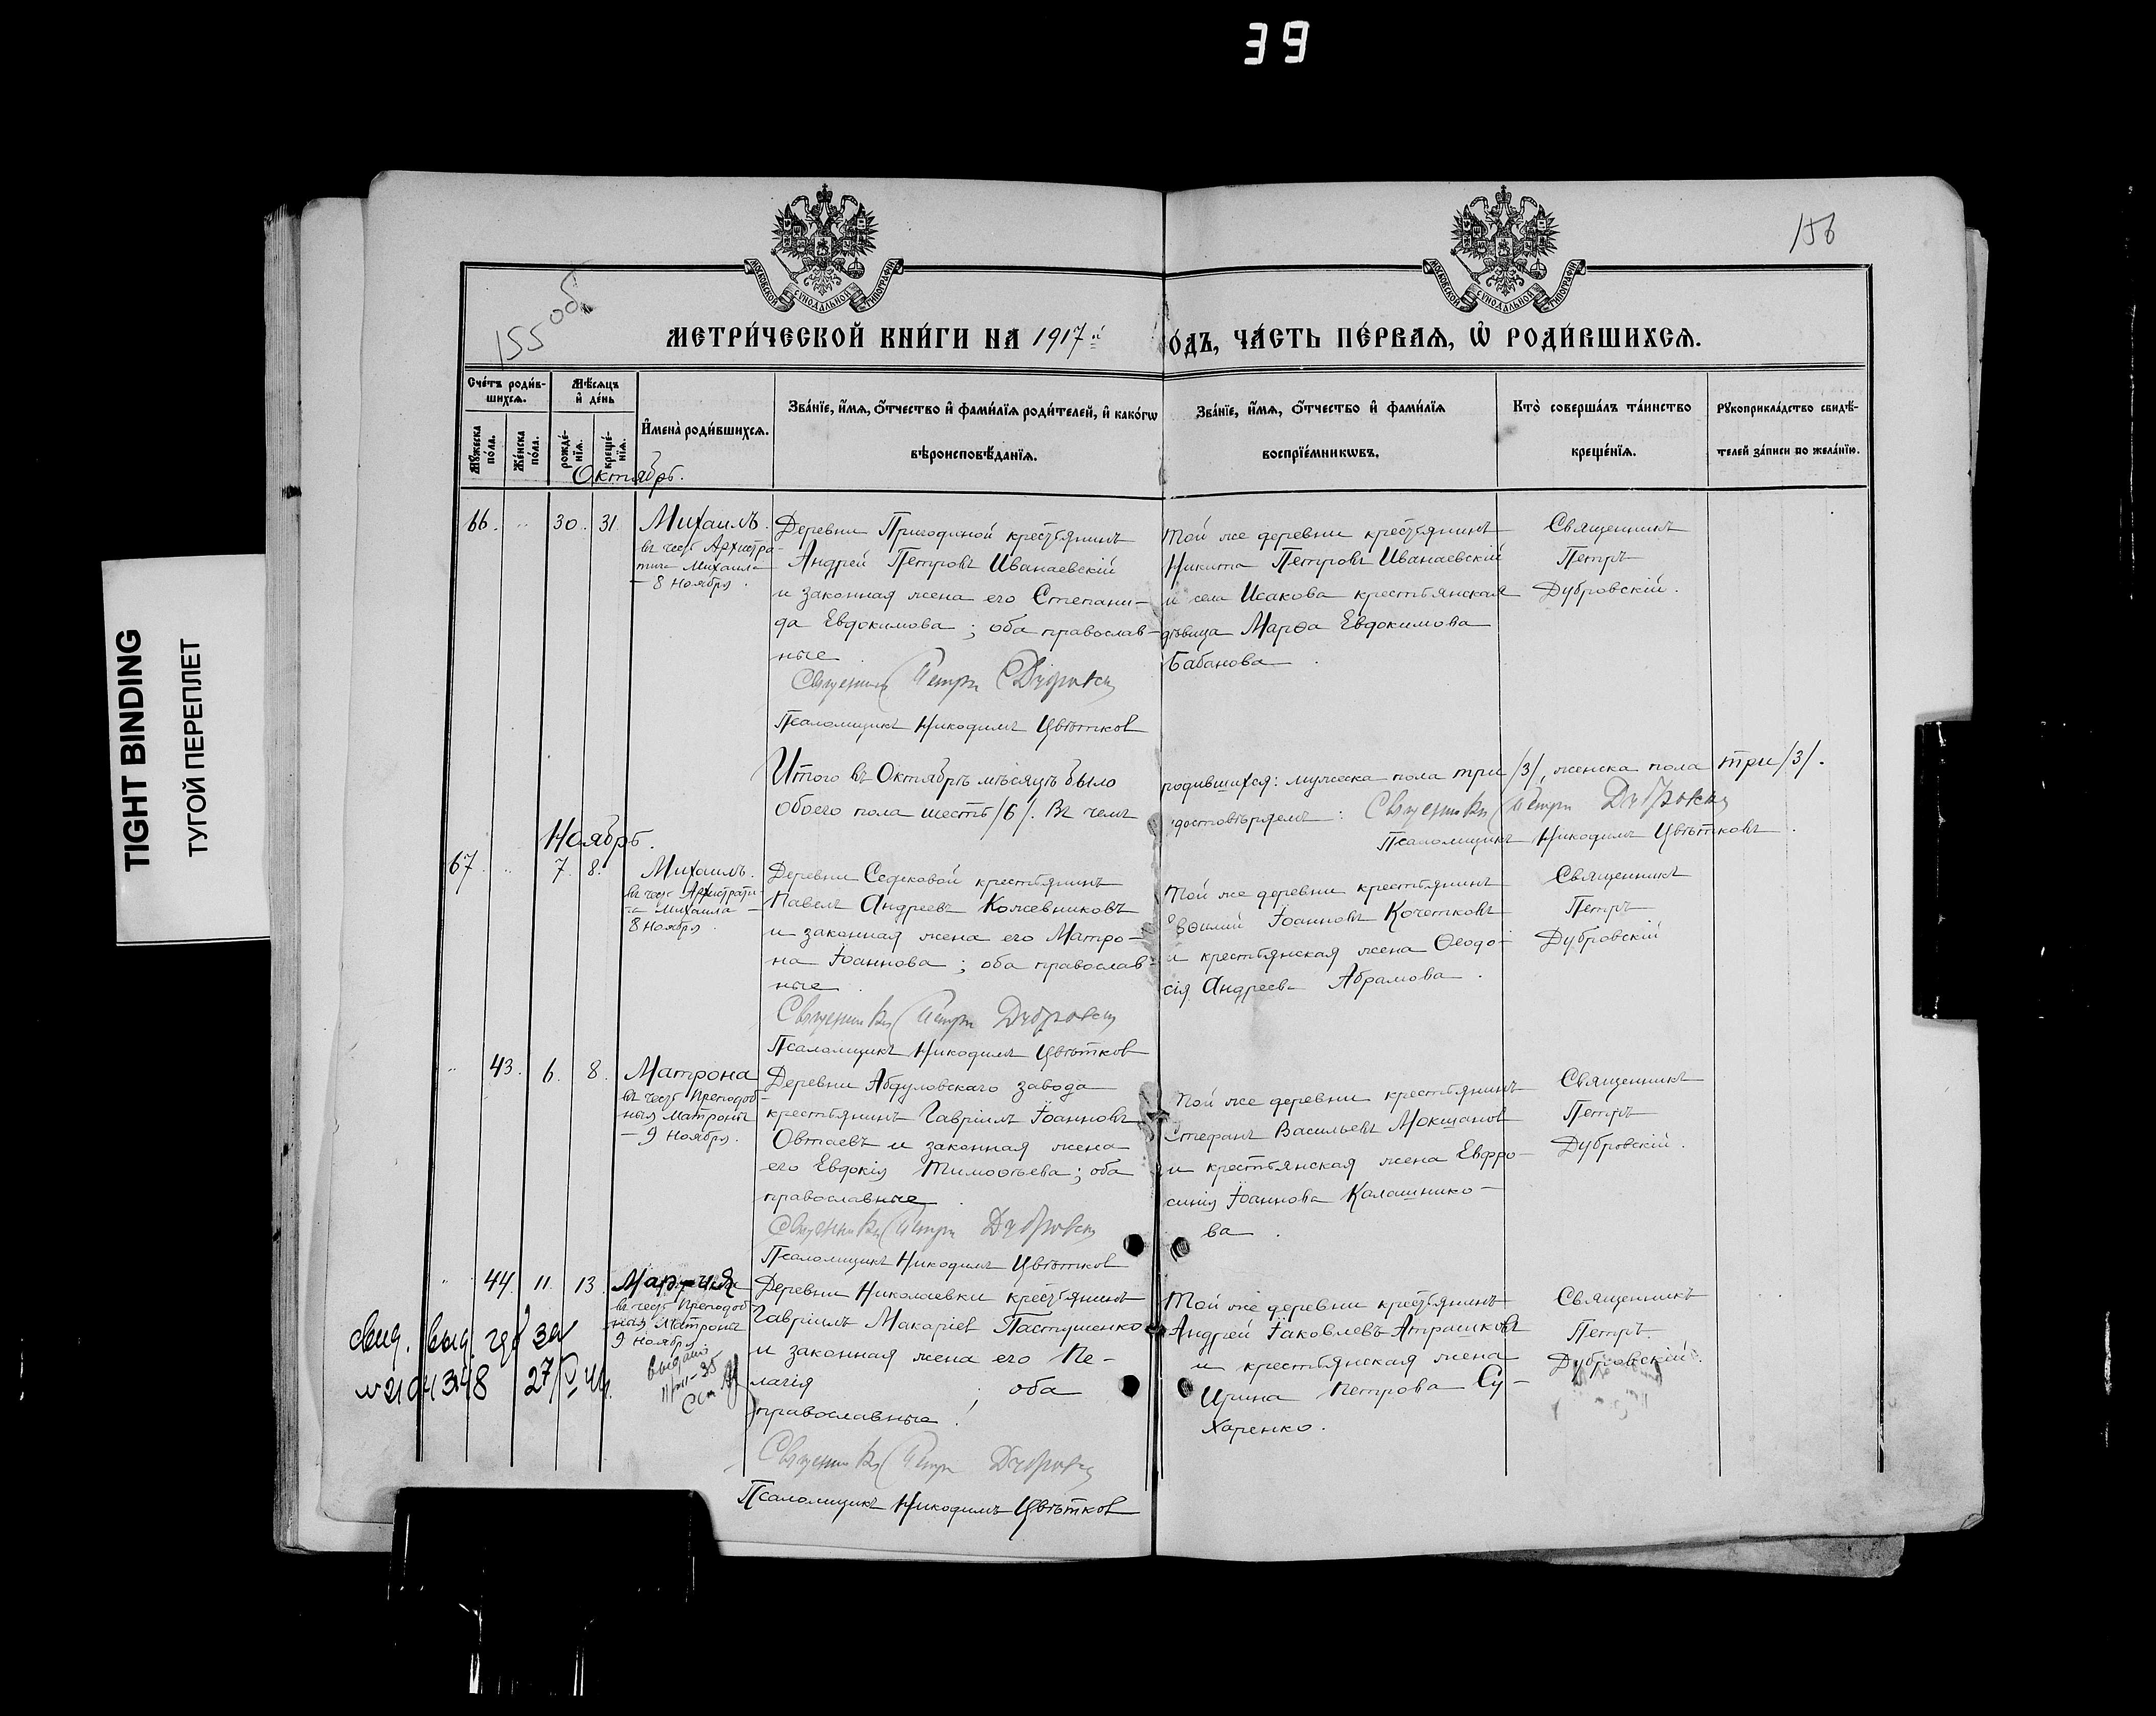 39
TIGHT BINDING
ТУГОЙ ПЕРЕПЛЕТ
155 об.
156
МОСКОВСКОЙ СѴНОДАЛЬНОЙ ТИПОГРАФІИ
МОСКОВСКОЙ СѴНОДАЛЬНОЙ ТИПОГРАФІИ
МЕТРИ́ЧЕСКОЙ КНИ́ГИ НА 1917й
О́ДЪ, ЧА́СТЬ ПЕ́РВАѦ, Ѡ҆ РОДИ́ВШИХСѦ.
Сче́тъ роди́в-
шихсѧ.
Мѹ́жеска по́ла.
Же́нска по́ла.
Мѣ́сѧцъ и҆ де́нь
рожде́-нїѧ.
креще́-нїѧ.
И҆мена̀ роди́вшихсѧ.
Зва́нїе, и҆́мѧ, ѻ҆́тчество и҆ фами́лїѧ роди́телей, и҆ како́гѡ
вѣроисповѣ́данїѧ.
Зва́нїе, и҆́мѧ, ѻ҆́тчество и҆ фами́лїѧ
воспрїе́мникѡвъ.
Кто̀ соверша́лъ та́инство
креще́нїѧ.
Рѹкоприкла́дство свидѣ́-
телей за́писи по жела́нїю.
Октябрь.
66. " 30. 31. Михаилъ.
въ честь Архистра-
тига Михаила
– 8 Ноября.
Деревни Пригодиной крестьянинъ
Андрей Петровъ Иванаевскій
и законная жена его Степани-
да Евдокимова; оба православ-
ные.
Священникъ Петръ Дубровскій
Псаломщикъ Никодимъ Цвѣтков
Той же деревни крестьянинъ
Никита Петровъ Иванаевскій
и села Исакова крестьянская
дѣвица Марѳа Евдокимова
Бабанова.
Священникъ
Петръ
Дубровскій.
Итого въ Октябрѣ мѣсяцѣ было родившихся: мужеска пола три /3/, женска пола три /3/.
Обоего пола шесть /6/. Въ чемъ удостовѣряемъ: Священникъ Петръ Дубровскій
Псаломщикъ Никодимъ Цвѣтковъ.
Ноябрь.
67. " 7. 8. Михаилъ.
въ честь Архистрати-
га Михаила –
8 Ноября.
Деревни Сефековой крестьянинъ
Павелъ Андреевъ Кожевниковъ
и законная жена его Матро-
на Іоаннова; оба православ-
ные.
Священникъ Петръ Дубровскій
Псаломщикъ Никодимъ Цвѣтков
Той же деревни крестьянинъ
Іоанновъ Кочетковъ
и крестьянская жена Ѳеодо-
сія Андреева Абрамова.
Священникъ
Петръ
Дубровскій
" 43. 6. 8. Матрона
въ честь Преподоб-
ныя Матроны
– 9 Ноября.
Деревни Абдуловскаго завода
крестьянинъ Гавріилъ Іоанновъ
Овтаевъ и законная жена
его Евдокія Тимоѳѣева; оба
православные.
Священникъ Петръ Дубровскій
Псаломщикъ Никодимъ Цвѣтков
Той же деревни крестьянинъ
Стефанъ Васильевъ Мокшанов
и крестьянская жена Евфро-
синія Іоаннова Калашнико-
ва.
Священникъ
Петръ
Дубровскій.
" 44. 11. 13.
въ честь Преподоб-
ныя Матроны
9 Ноября
Выдано
Деревни Николаевки крестьянинъ
Гавріилъ Макаріев Пастушенко
и законная жена его Пе-
лагія ; оба
православные.
Священникъ Петръ Дубровскій
Псаломщикъ Никодимъ Цвѣтков
Той же деревни крестьянинъ
Андрей Іаковлевъ Атрашковъ
и крестьянская жена
Ирина Петрова Су-
харенко.
Священникъ
Петръ
Дубровскій.
свид. выд. за